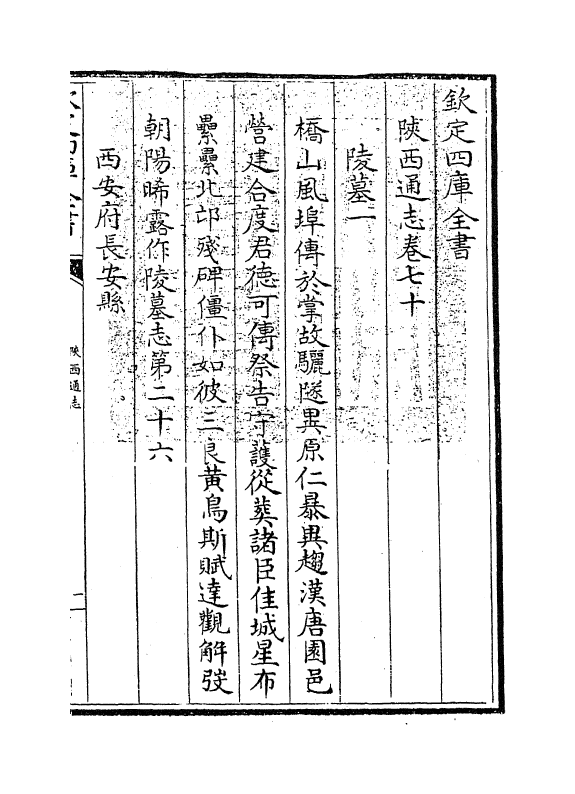 欽定四庫全書
陝西通志卷七十
陵墓一
橋山風埠傳於掌故驪隧異原仁暴異趨漢唐園邑
營建合度君德可傳祭告守護從葬諸臣佳城星布
纍纍北邙殘碑僵仆如彼三良黃鳥斯賦達觀解弢
朝陽晞露作陵墓志第二十六
西安府長安縣
陝西通志